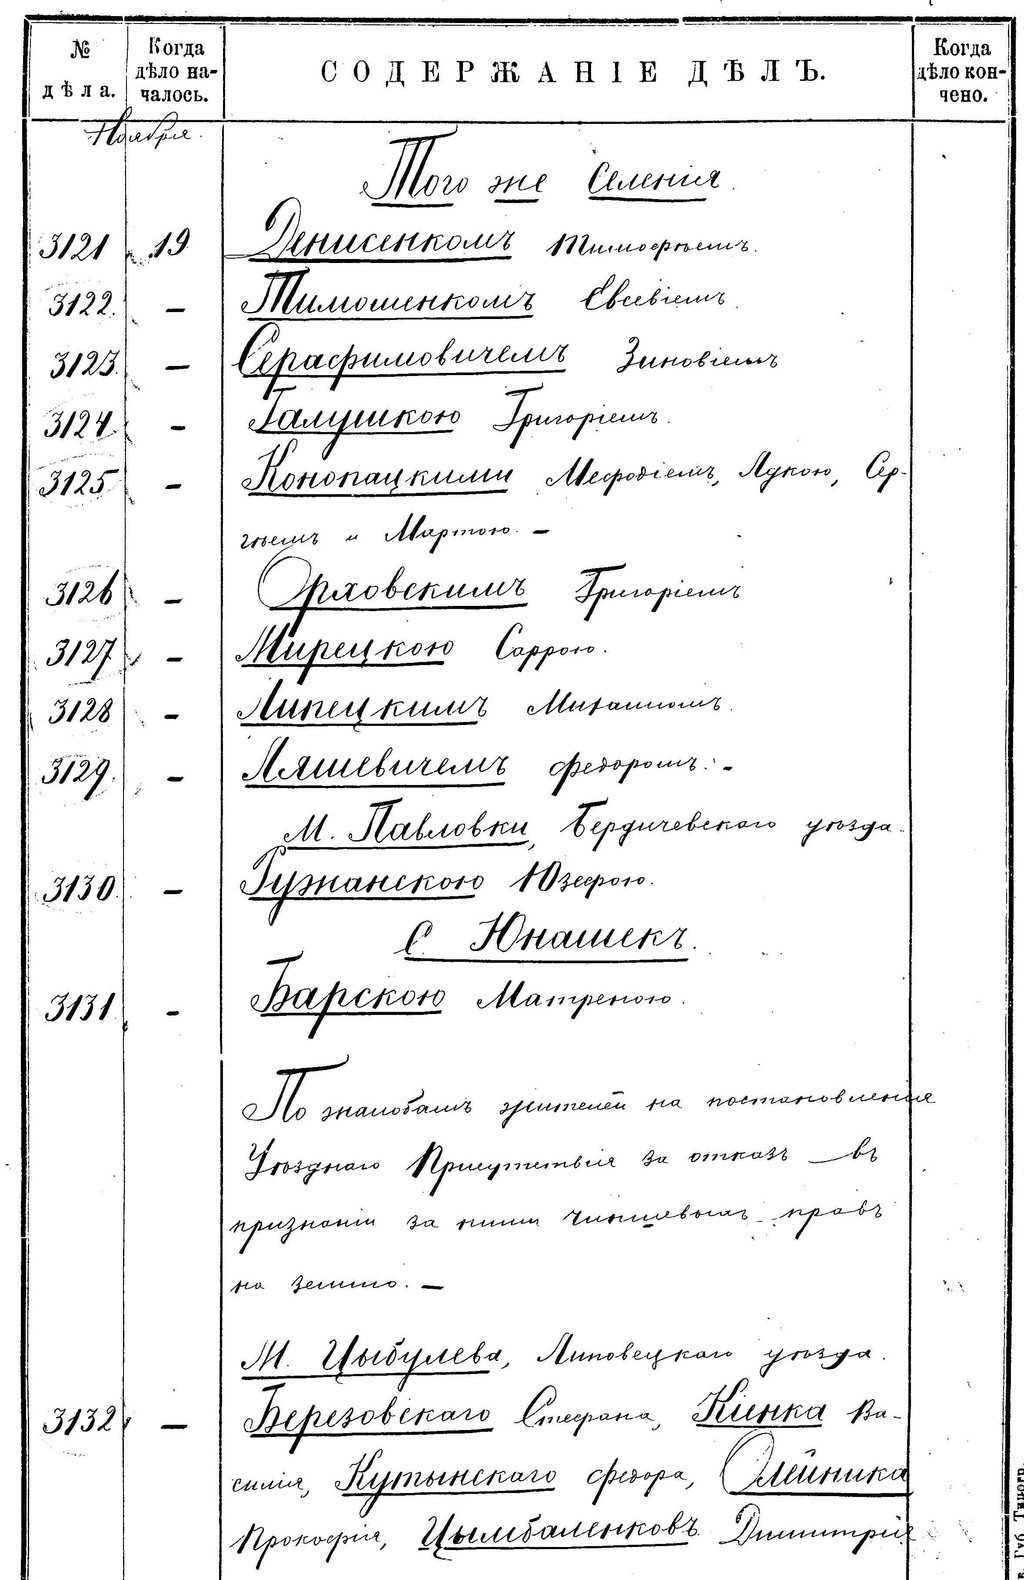 № дѣла.
Когда дѣло началось.
СОДЕРЖАНІЕ ДѢЛЪ.
Когда дѣло кончено.
Ноября.
Того же Селенія.
3121 19 Денисенкомъ Тимофѣемъ.
3122. — Тимошенкомъ Евсевіемъ.
3123. — Серафимовичемъ Зиновіемъ
3124. — Галушкою Григоріемъ.
3125 — Конопацкими Мефодіемъ, Лукою, Сер-
гѣемъ и Мартою. —
3126 — Орховскимъ Григоріемъ
3127 — Мирецкою Саррою.
3128 — Липецкимъ Михаиломъ.
3129. — Ляшевичемъ Федоромъ. —
М. Павловки, Бердичевскаго уѣзда.
3130. — Гужанскою Юзефою.
С. Юнашекъ.
3131 — Барскою Матреною.
По жалобамъ жителей на постановленія
Уѣзднаго Присутствія за отказъ — въ
признаніи за ними чиншевыхъ правъ
на землю. —
М. Цыбулева, Липовецкаго уѣзда.
3132 — Березовскаго Стефана, Кіенка Ва-
силія, Кутынскаго Федора, Олейника
Прокофія, Цымбаленковъ Димитрія
Губ. Типогр.